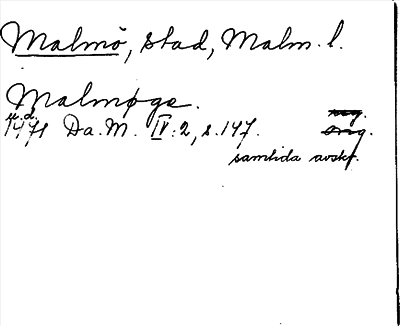 Malmö, stad, Malm. l.
Malmøge.
u.d.
1471 Da. M. IV:2, s. 147. orig.
samtida avskr.